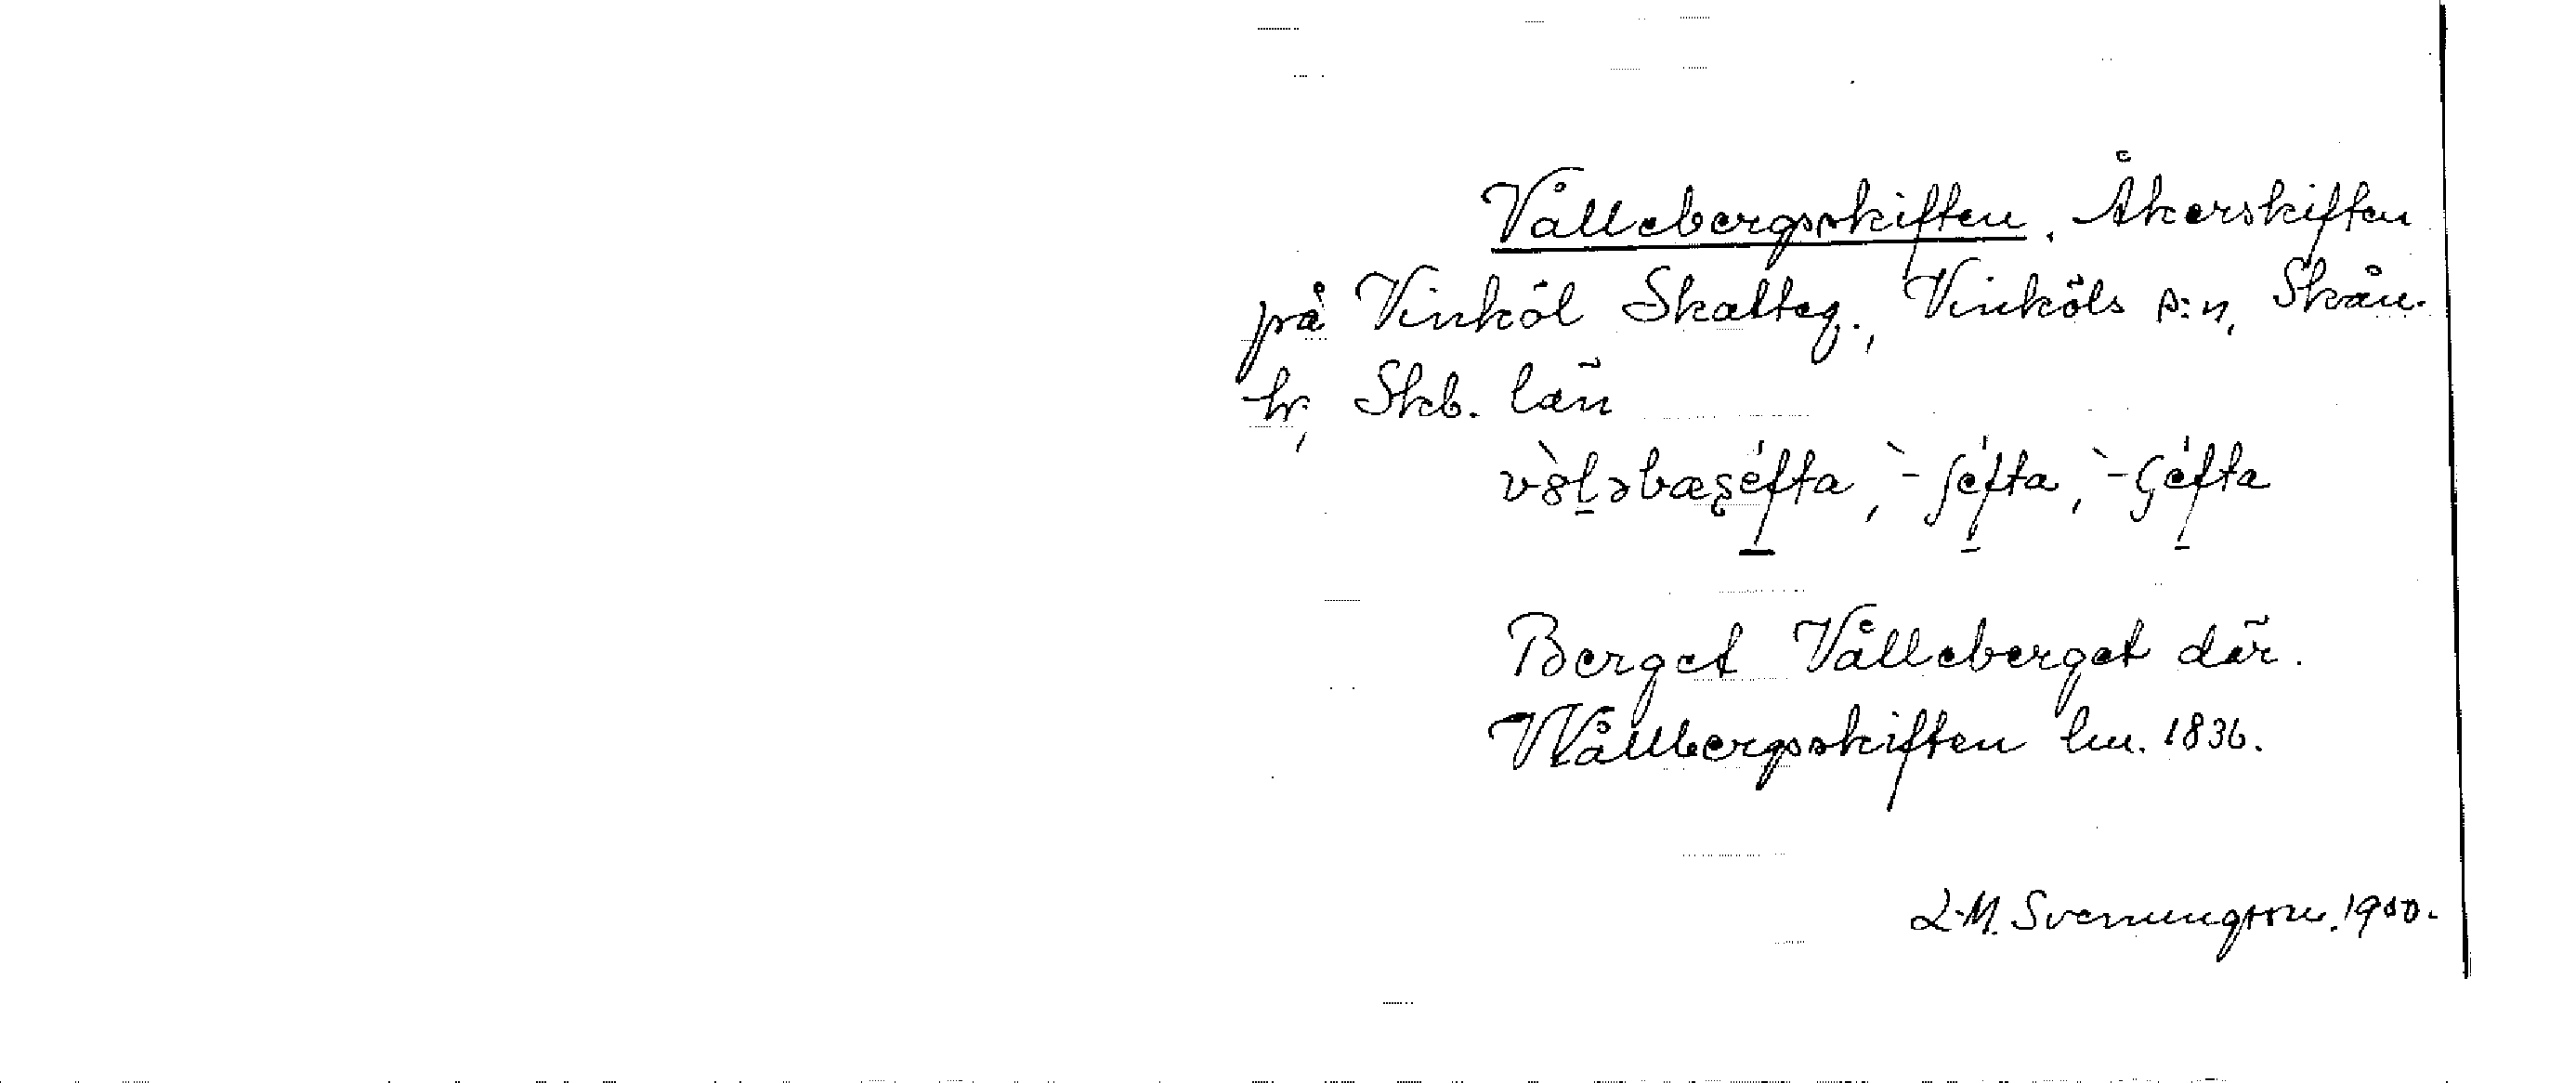 Vållebergsskiften. Åkerskiften
på Vinköl Skatteg., Vinköls s:n, Skån.
hr, Skb. län
Berget Vålleberget där.
Wållbergsskiften lm. 1836.
L-M. Svenungsson. 1950.